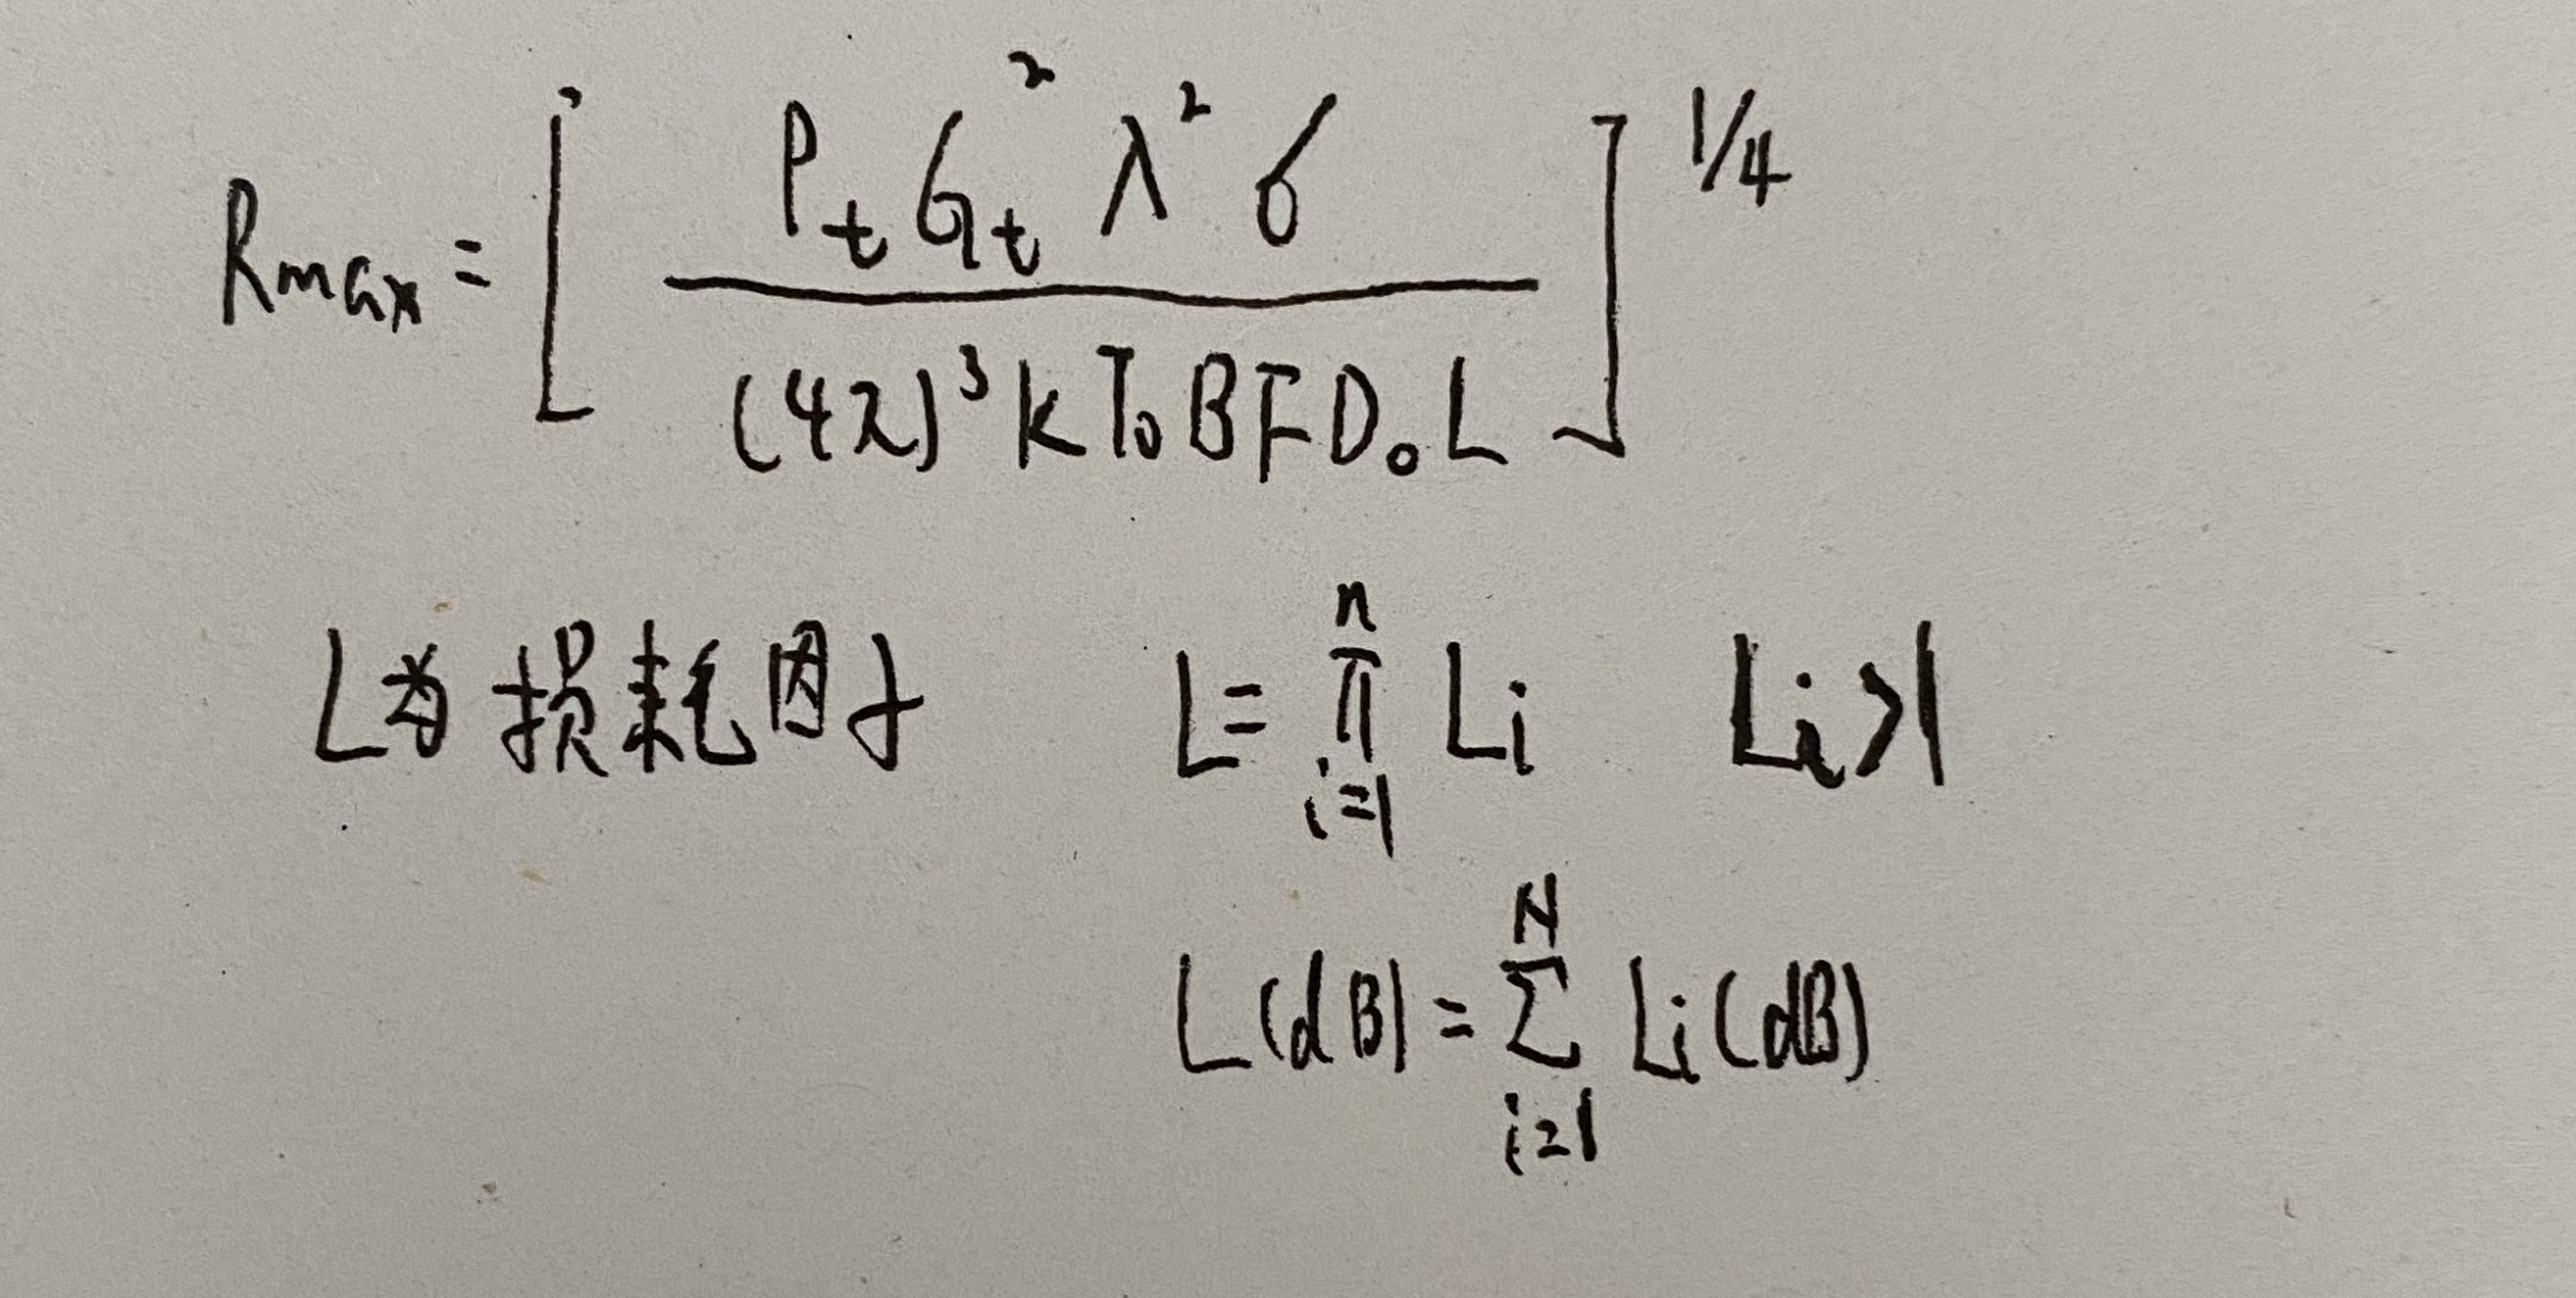 Rmax = [ (Pt Gt² λ² σ) / ((4π)³ k T₀ B F D₀ L) ]^1/4
L为损耗因子 L = ∏_{i=1}^{n} Li Li>1
L(dB) = ∑_{i=1}^{N} Li(dB)